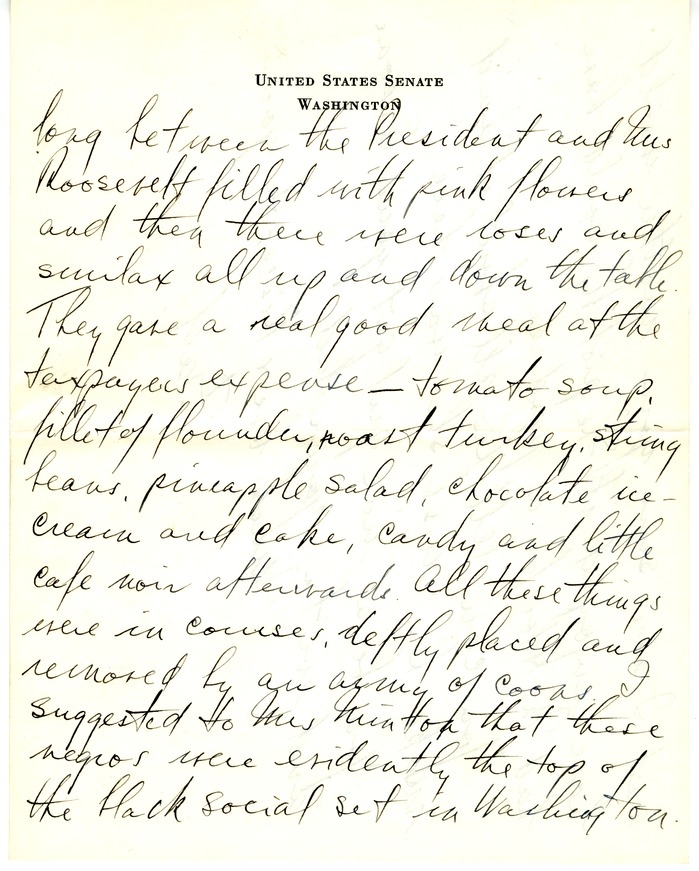 UNITED STATES SENATE
WASHINGTON
long between the President and Mrs
Roosevelt filled with pink flowers
and then there were roses and
smilax all up and down the table.
They gave a real good meal at the
taxpayers expense — tomato soup,
fillet of flounder, roast turkey, string
beans, pineapple salad, chocolate ice-
cream and cake, candy and little
cafe noir afterwards. All these things
were in courses, deftly placed and
removed by an army of coons. I
suggested to Mrs Minton that these
negros were evidently the top of
the black social set in Washington.